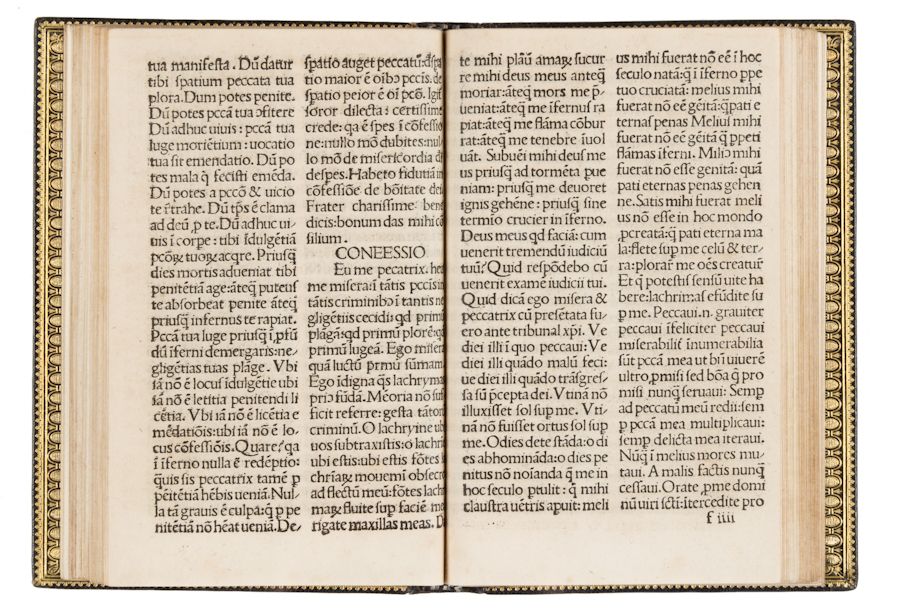 tua manifesta. Dũ datur
tibi spatium peccata tua
plora. Dum potes penite.
Dũ potes pccã tua ɔfitere
Dũ adhuc uiuis: pccã tua
luge moriẽtium: uocatio
tua sit emendatio. Dũ po
tes mala q̃ fecisti emẽda.
Dũ potes a pccõ & uicio
te r̃trahe. Dũ tp̃s ẽ clama
ad deũ ,p te. Dũ adhuc ui-
uis ĩ corpe: tibi ĩdulgẽtiã
pcõꝝ tuoꝝ acqre. Priusq̃
dies mortis adueniat tibi
penitẽtiã age: ãteq̃ puteus
te absorbeat penite ãteq̃
priusq̃ infernus te rapiat.
Pccã tua luge priusq̃ ĩ ,pfũ
dũ ĩferni demergaris: ne-
gligẽtias tuas plãge. Vbi
iã nõ ẽ locus ĩdulgẽtie ubi
iã nõ ẽ letitia penitendi li
cẽtia. Vbi iã nõ ẽ licẽtia e
mẽdatiõis: ubi iã nõ ẽ lo-
cus cõfessiõis. Quare? qa
ĩ ĩferno nulla ẽ redẽptio:
q̃uis sis peccatrix tamẽ p
peĩtẽtiã hẽbis ueniã. Nul-
la tã grauis ẽ culpa: q̃ p pe
nitẽtiã nõ hẽat ueniã. De-
spatio auget peccatũ: d̃spa
tio maior ẽ oĩbɔ pccis. de
spatio peior ẽ õi pcõ. Igit̃
soror dilecta: certissime
crede: qa ẽ spes ĩ cõfessio
ne: nullo mõ dubites: nul
lo mõ de misericordia d̃i
despes. Habeto fidutiã in
cõfessiõe de bõitate dei
Frater charissime bene
dicis: bonum das mihi cõ
silium.
CONEESSIO
Eu me pecatrix. heu
me misera: ĩ tatis pccis in
tãtis criminibɔ ĩ tantis ne
gligẽtiis cecidi: qd primũ
plãgã: qd primũ plorẽ: qd
primũ lugeã. Ego misera
quã luctũ prmu sũmam
Ego ĩdigna q̃s lachrymas
priɔ fũdã. Meõria nõ suf
ficit referre: gesta tãtorũ
criminũ. O lachryme ubi
uos subtraxistis: o lachri
ubi estis: ubi estis fõtes la
chriaꝝ mouemĩ obsecro
ad flectũ meũ: fõtes lachri
maꝝ fluite sup faciẽ me
rigate maxillas meas. D
te mihi plãũ amaꝝ sucur
re mihi deus meus anteq̃
moriar: ãteq̃ mors me p̃-
ueniat: ãteq̃ me ĩfernus ra
piat: ãteq̃ me flãma cõbur
rat: ãteq̃ me tenebre ĩuol
uãt. Subueĩ mihi deus me
us priusq̃ ad tormẽta pue
niam: priusq̃ me deuoret
ignis gehẽne: priusq̃ sine
termio crucier in ĩferno.
Deus meus qd faciã: cum
uenerit tremendũ iudiciũ
tuũ? Quid respõdebo cũ
uenerit examẽ iudicii tui.
Quid dicã ego misera &
peccatrix cũ presẽtata fu-
ero ante tribunal xp̃i. Ve
diei illi ĩ quo peccaui: Ve
diei illi quãdo malũ feci:
ue diei illi quãdo trãsgres-
sa sũ p̃cepta dei. Vtinã nõ
illuxisset sol sup me. Vti-
nã nõ fuisset ortus sol sup
me. O dies dete stãda: o di
es abhominãda: o dies pe
nitus nõ noĩanda q̃ me in
hoc seculo ptulit: q̃ mihi
claustra uẽtris apuit: meli
us mihi fuerat nõ eẽ ĩ hoc
seculo natã: q̃ ĩ ĩferno ppe
tuo cruciatã: melius mihi
fuerat nõ eẽ gẽitã: q̃ pati e
ternas penas Melius mihi
fuerat nõ eẽ gẽitã q̃ ppeti
flãmas ĩferni. Meliɔ mihi
fuerat nõ esse genitã: quã
pati eternas penas gehen
ne. Satis mihi fuerat meli
us nõ esse in hoc mondo
,pcreatã: q̃ pati eterna ma
la: flete sup me celũ & ter-
ra: plorat̃ me oẽs creatur̃
Et q̃ potestis sensũ uite ha
bere: lachrim̃as efũdite su
p me. Peccaui .n. grauiter
peccaui ĩfeliciter peccaui
miserabilit̃ ĩnumerabilia
sũt pccã mea ut bñ uiuerẽ
ultro ,pmisi sed bõa q̃ pro
misi nunq̃ seruaui: Semp
ad peccatũ meũ redii: sem
p pccã mea multiplicaui:
semp delicta mea iteraui.
Nũq̃ ĩ melius mores mu-
taui. A malis factis nunq̃
cessaui. Orate ,p me domi
nũ uiri sc̃ti: ĩtercedite pro
f iiii